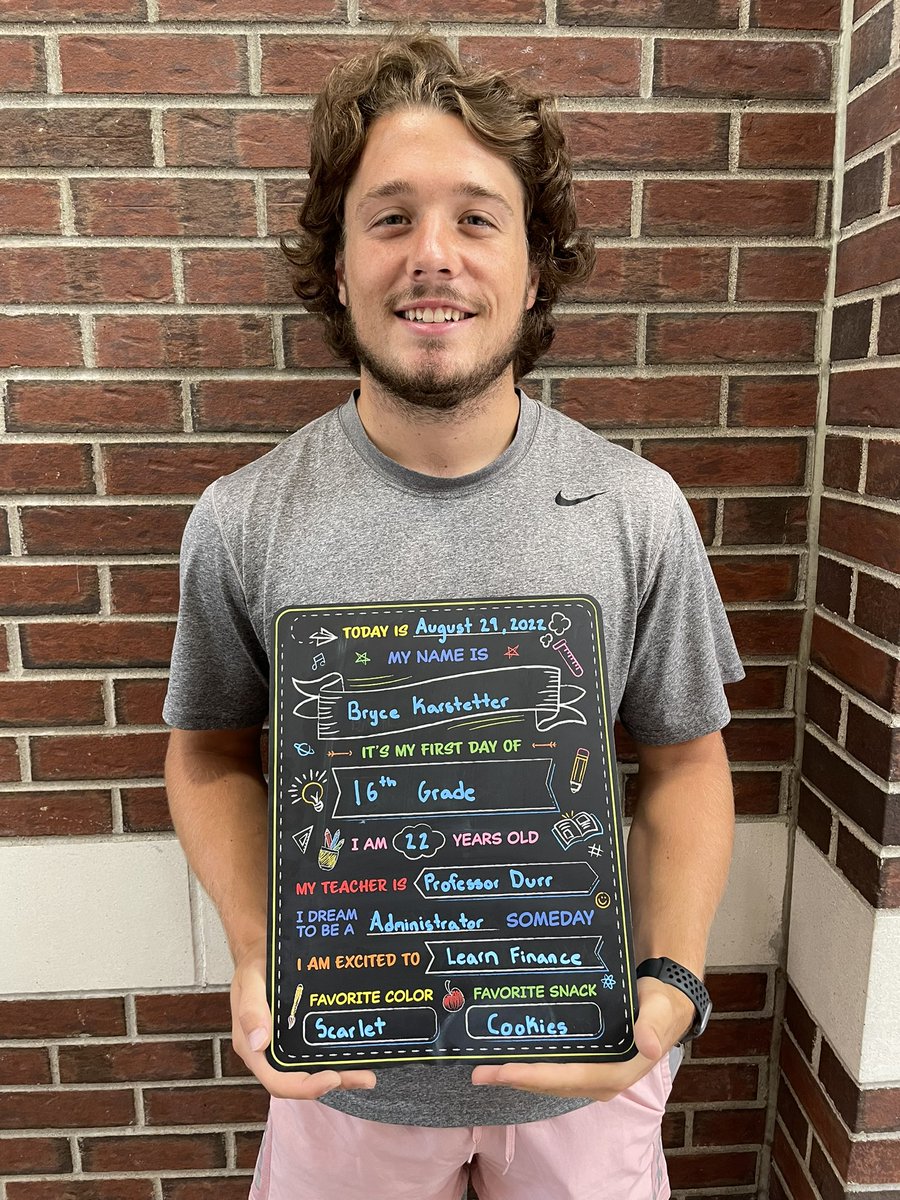 TODAY IS August 29, 2022
MY NAME IS
Bryce Karstetter
IT'S MY FIRST DAY OF
16th Grade
I AM 22 YEARS OLD
MY TEACHER IS Professor Durr
I DREAM TO BE A Administrator SOMEDAY
I AM EXCITED TO Learn Finance
FAVORITE COLOR FAVORITE SNACK
Scarlet Cookies